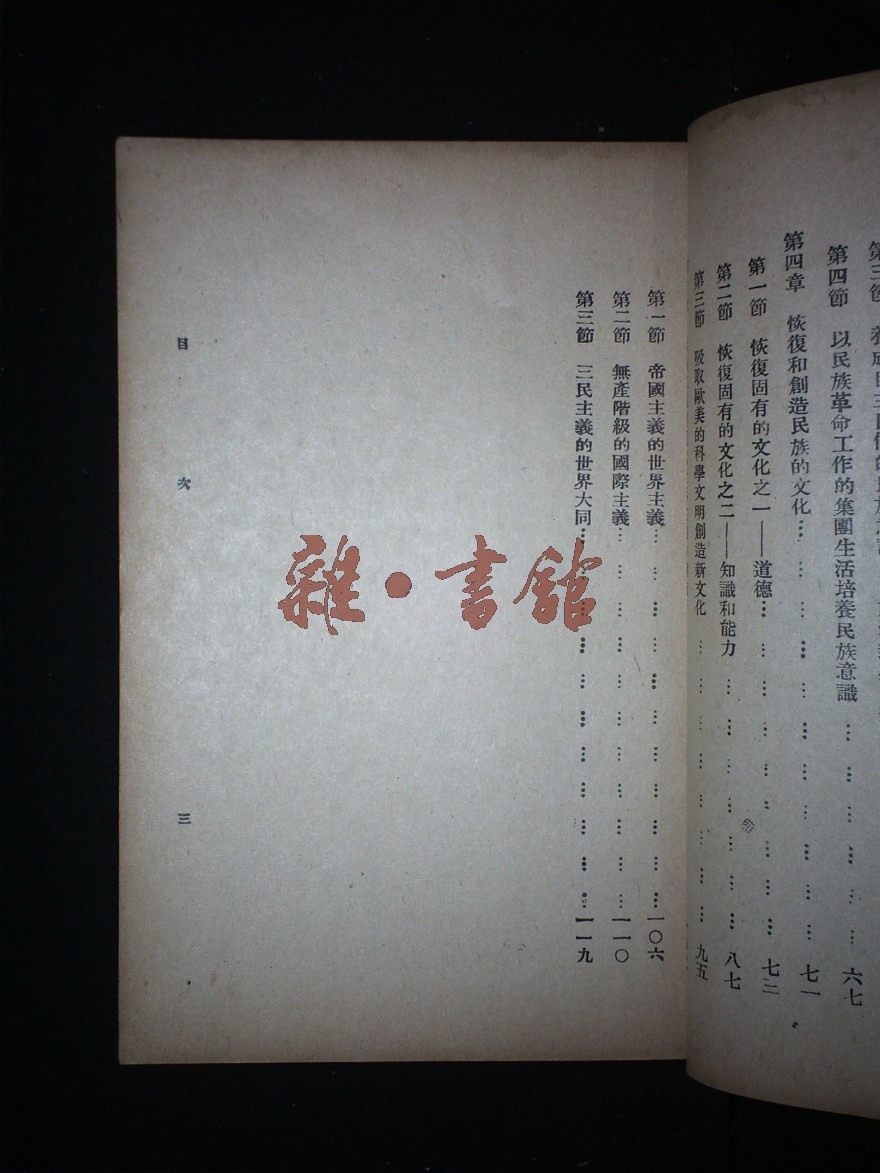 第四節　以民族革命工作的集團生活培養民族意識………………六七
第四章　恢復和創造民族的文化………………七一
第一節　恢復固有的文化之一——道德………………七二
第二節　恢復固有的文化之二——知識和能力………………八七
第三節　吸取歐美的科學文明創造新文化………………九五
第一節　帝國主義的世界主義………………一〇六
第二節　無產階級的國際主義………………一一〇
第三節　三民主義的世界大同………………一一九
目次　三
雜·書館